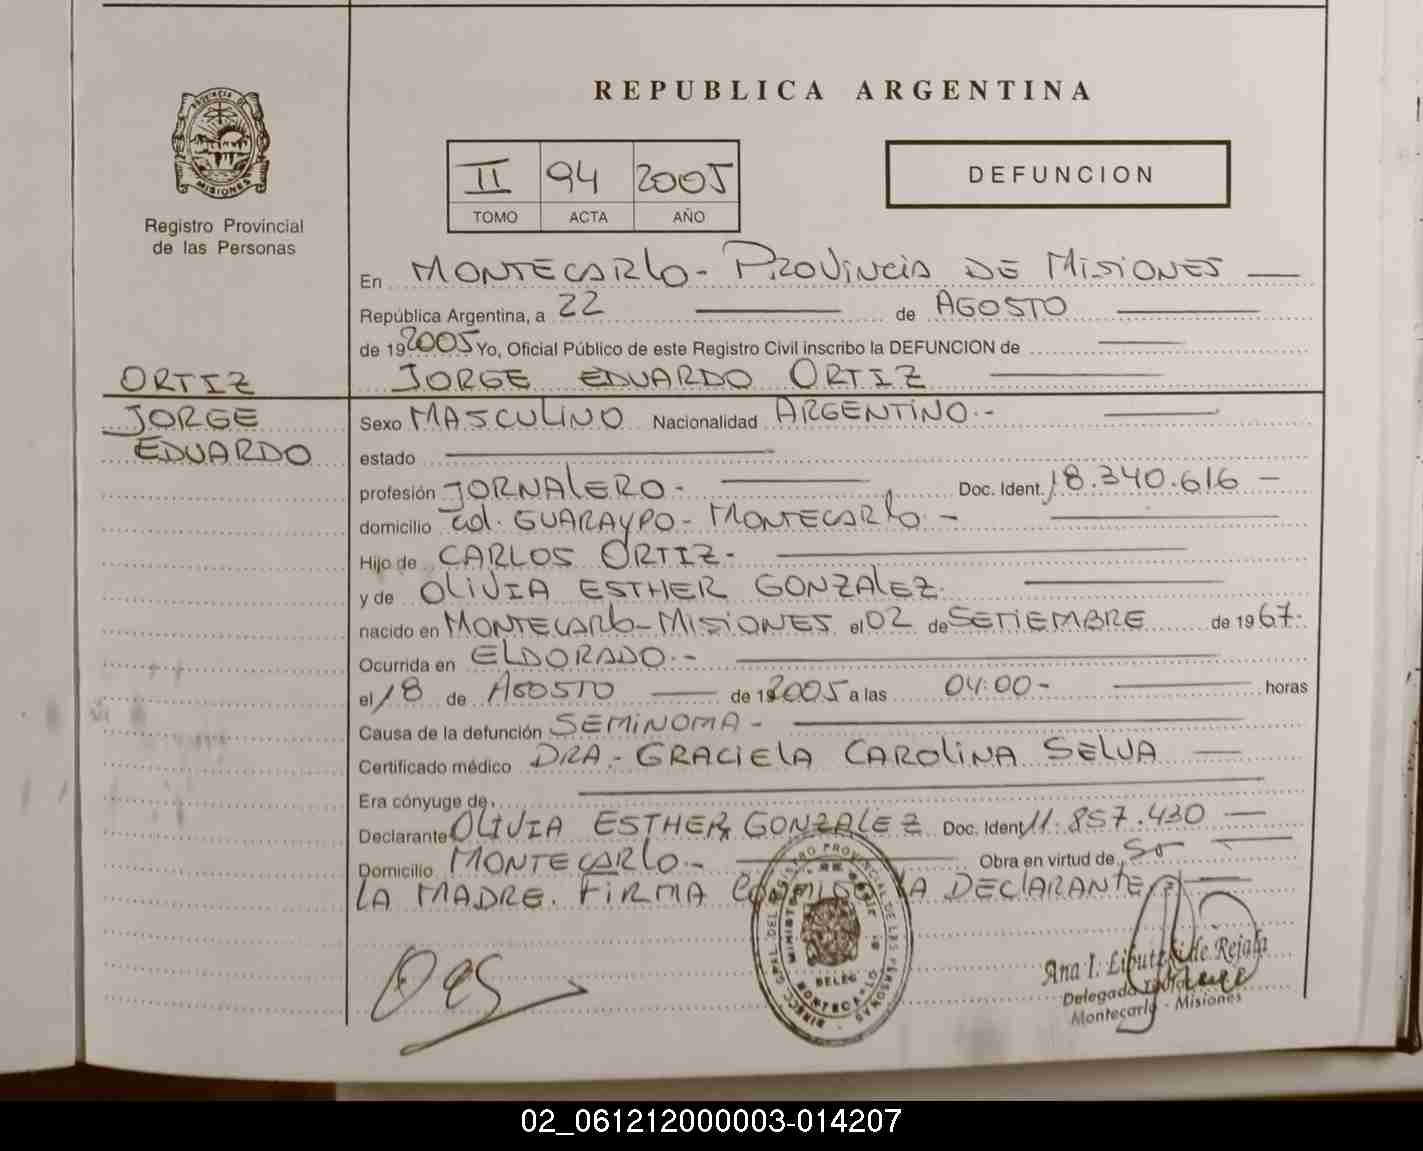 REPUBLICA ARGENTINA
PROVINCIA DE
MISIONES
Registro Provincial
de las Personas
II 94 2005
TOMO ACTA AÑO
DEFUNCION
En MONTECARLO - PROVINCIA DE MISIONES
República Argentina, a 22 de AGOSTO
de 19 2005 Yo, Oficial Público de este Registro Civil inscribo la DEFUNCION de
JORGE EDUARDO ORTIZ
ORTIZ
JORGE
EDUARDO
Sexo MASCULINO Nacionalidad ARGENTINO.-
estado
profesión JORNALERO - Doc. Ident. 18.340.616 -
domicilio Col. GUARAYPO - MONTECARLO. -
Hijo de CARLOS ORTIZ.
y de OLIVIA ESTHER GONZALEZ.
nacido en MONTECARLO - MISIONES el 02 de SETIEMBRE de 1967.
Ocurrida en ELDORADO. -
el 18 de AGOSTO de 2005 a las 04:00 - horas
Causa de la defunción SEMINOMA -
Certificado médico DRA. GRACIELA CAROLINA SELVA
Era cónyuge de
Declarante OLIVIA ESTHER GONZALEZ Doc. Ident. 11.857.430
Domicilio MONTECARLO. - Obra en virtud de SO
LA MADRE. FIRMA CONMIGO LA DECLARANTE
Ana I. de Rejala
Delegado
Montecarlo - Misiones
02_061212000003-014207